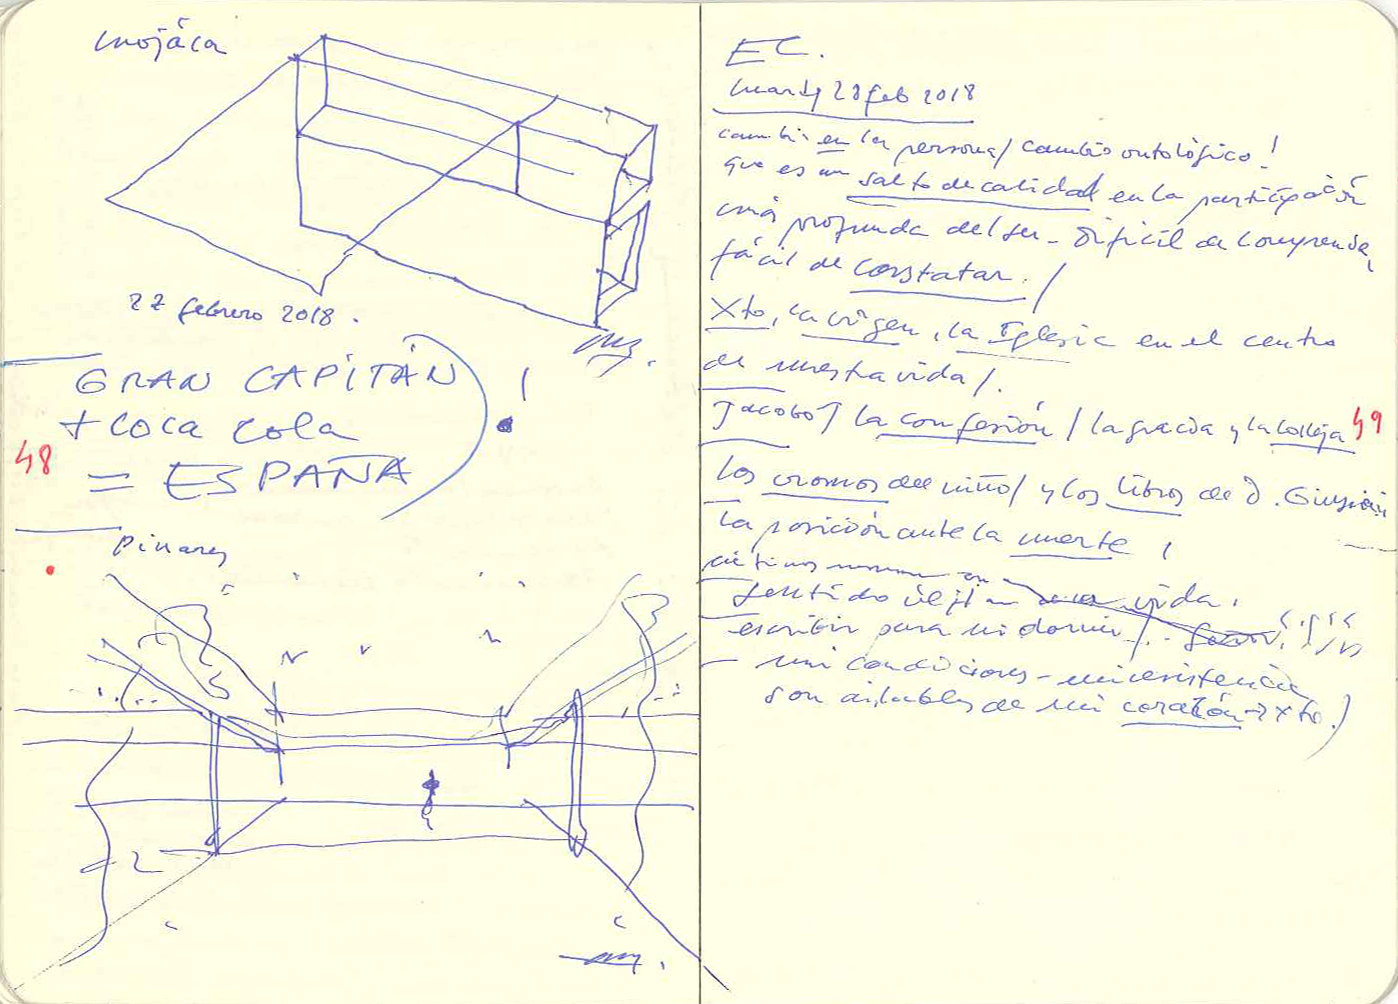 mojáca
22 febrero 2018.
GRAN CAPITÁN
+ coca cola
= ESPAÑA
!
48
pinares
EC.
28 feb 2018
cambio en la persona/ cambio ontológico!
que es un salto de calidad en la participación
más profunda del ser - Difícil de comprender,
fácil de constatar. /
Xto, la virgen, la Iglesia en el centro
de nuestra vida/.
Jacobo/ la confesión / la gracia y la colleja
49
los cromos del niño/ y los libros de D. Giussani
la posición ante la muerte
sentido vida.
escribir para mi
mi condiciones - mi existencia
son de mi corazón → Xto.)